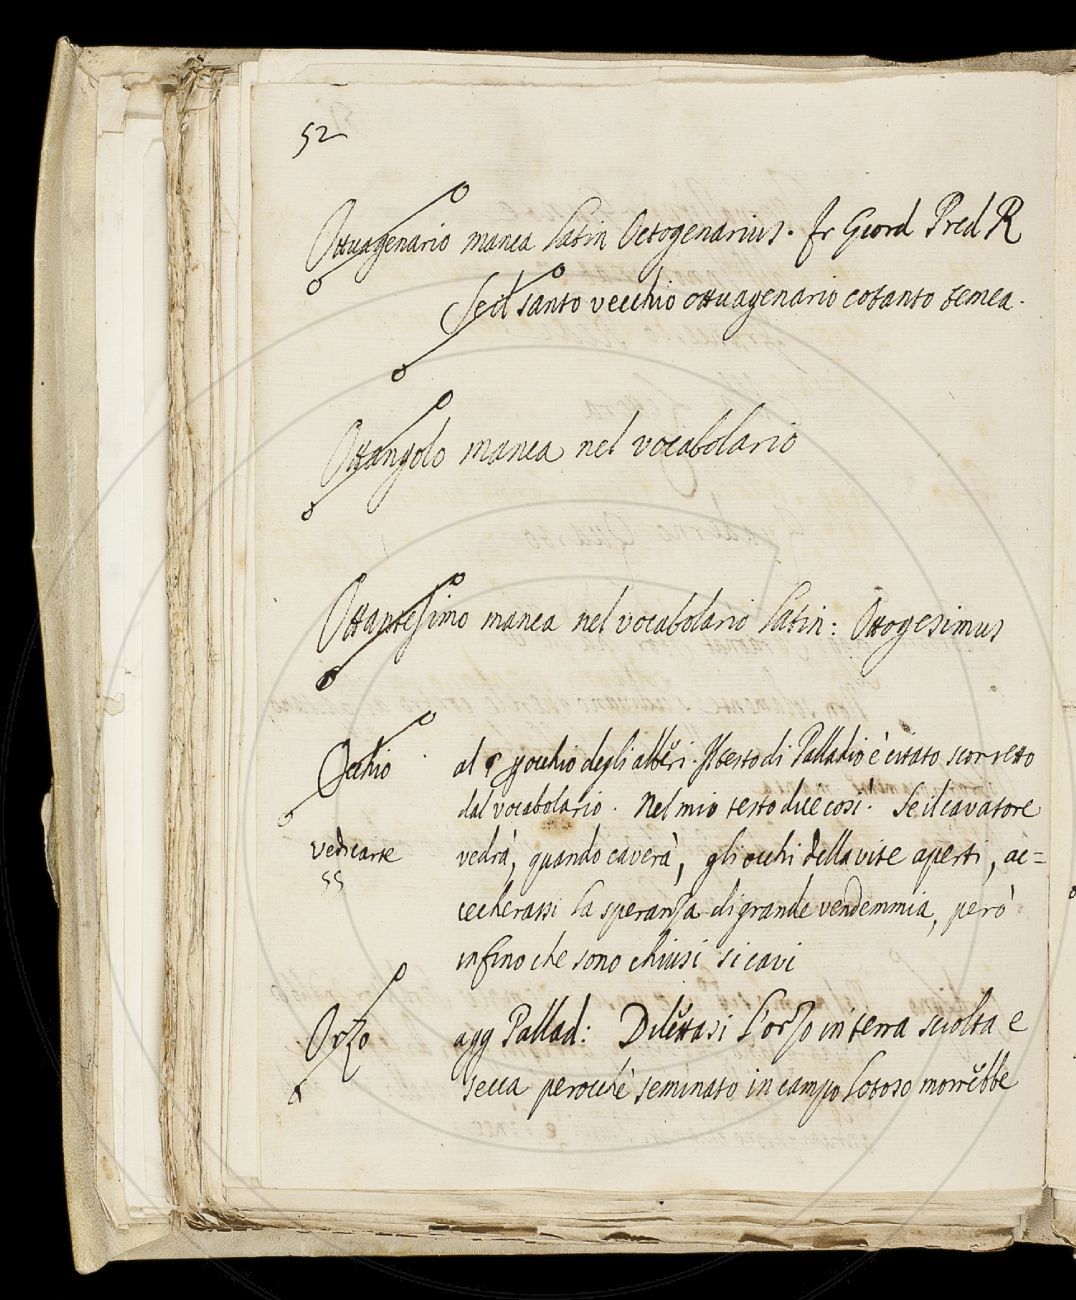 52
Ottuagenario manca Latin Octogenarius. fr Giord Pred R
Se il santo vecchio ottuagenario cotanto temea.
Ottangolo manca nel vocabolario
Ottantesimo manca nel vocabolario Latin: Ottogesimus
Occhio al § occhio degli alberi. Il testo di Palladio è citato scorretto
dal vocabolario. Nel mio testo dice così. Se il cavatore
vedi carte vedrà, quando caverà, gli occhi della vite aperti, ac=
55
cecherassi la speranza di grande vendemmia, però
infino che sono chiusi si cavi
Orzo agg Pallad: Dilettasi l'orzo in terra sciolta e
secca perocchè seminato in campo lotoso morrebbe